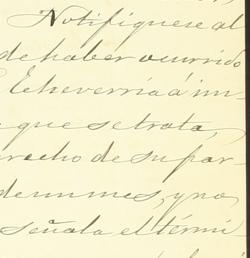 Notifíquese al
de haber ocurrido
Echeverría á im-
que se trata,
recho de su par-
de un mes, y no
señala el térmi